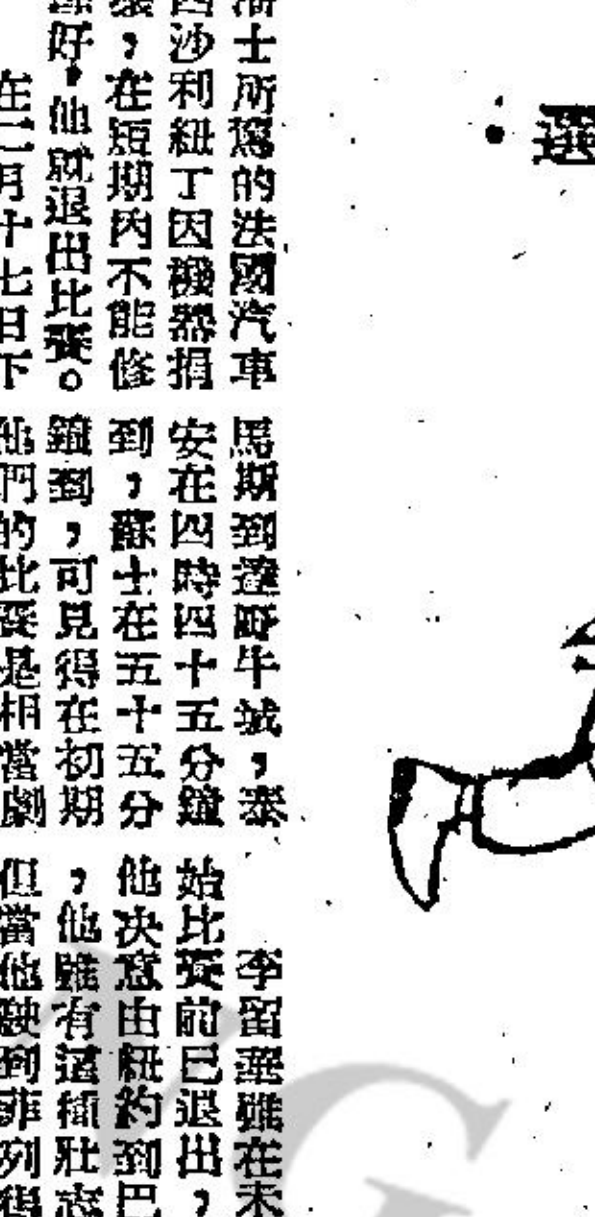 選
士所駕的法國汽車
沙利紐丁因機器損
，在短期內不能修
好，他就退出比賽。
在二月十七日下
馬斯到達野牛城，泰
安在四時四十五分鐘
到，蘇士在五十五分
鐘到，可見得在初期
他們的比賽是相當劇
李留華雖在未
始比賽前已退出，
他決意由紐約到巴
，他雖有這種壯志
但當他駛到菲列得